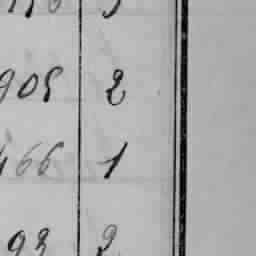 905 2
466 1
93 2